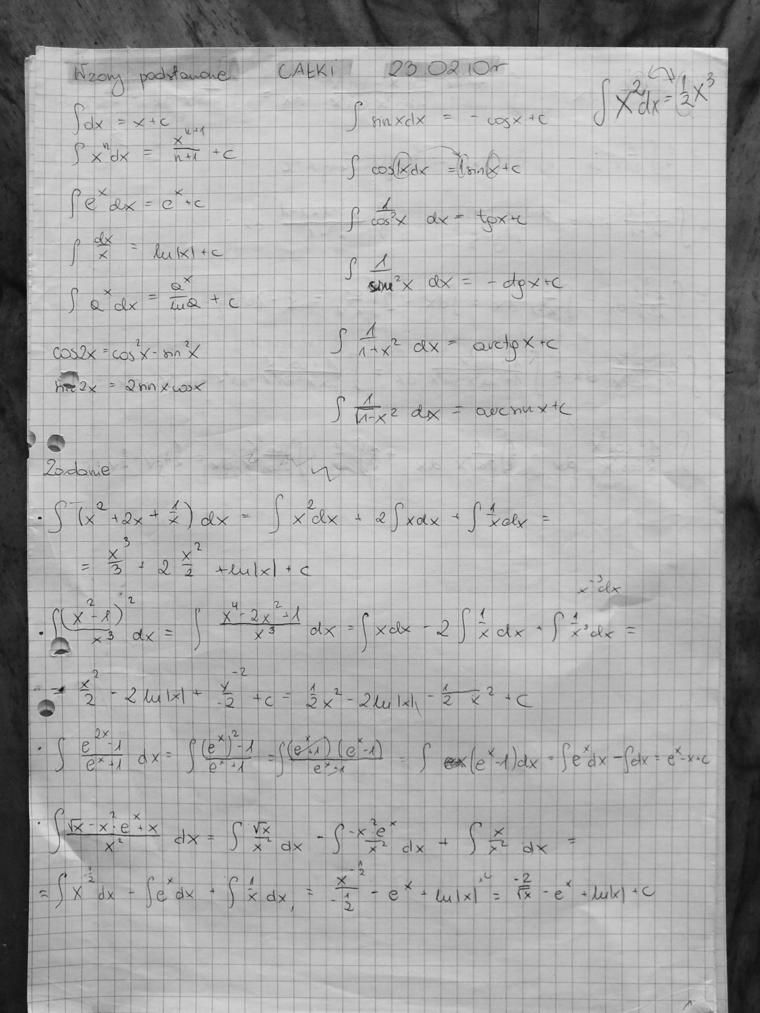 Wzory podstawowe CAŁKI 23 02 10r
∫ x² dx = ½ x³
∫ dx = x + c
∫ xⁿ dx = xⁿ⁺¹/(n+1) + c
∫ eˣ dx = eˣ + c
∫ dx/x = ln|x| + c
∫ aˣ dx = aˣ/ln a + c
cos2x = cos²x - sin²x
sin2x = 2sinxcosx
∫ sinxdx = - cosx + c
∫ cos1xdx = 1sinx + c
∫ 1/cos²x dx = tgx + c
∫ 1/sin²x dx = - ctgx + c
∫ 1/(1+x²) dx = arctgx + c
∫ 1/√(1-x²) dx = arcsinx + c
Zadanie
· ∫ (x² + 2x + 1/x) dx = ∫ x²dx + 2∫xdx + ∫ 1/x dx =
= x³/3 + 2 x²/2 + ln|x| + c
x⁻³dx
· ∫ (x² - 1)²/x³ dx = ∫ (x⁴ - 2x² + 1)/x³ dx = ∫xdx - 2∫ 1/x dx + ∫ 1/x³ dx =
= x²/2 - 2 ln|x| + x⁻²/-2 + c = ½x² - 2ln|x| - 1/2x² + c
· ∫ (e²ˣ - 1)/(eˣ + 1) dx = ∫ ((eˣ)² - 1)/(eˣ + 1) = ∫ (eˣ+1)(eˣ-1)/(eˣ+1) = ∫ (eˣ-1)dx = ∫eˣdx - ∫dx = eˣ - x + c
· ∫ (√x - x²·eˣ + x)/x² dx = ∫ √x/x² dx - ∫ -x²eˣ/x² dx + ∫ x/x² dx =
= ∫ x^(-½) dx - ∫eˣdx + ∫ 1/x dx = x^(-½)/(-½) - eˣ + ln|x| + c = -2/√x - eˣ + ln|x| + c